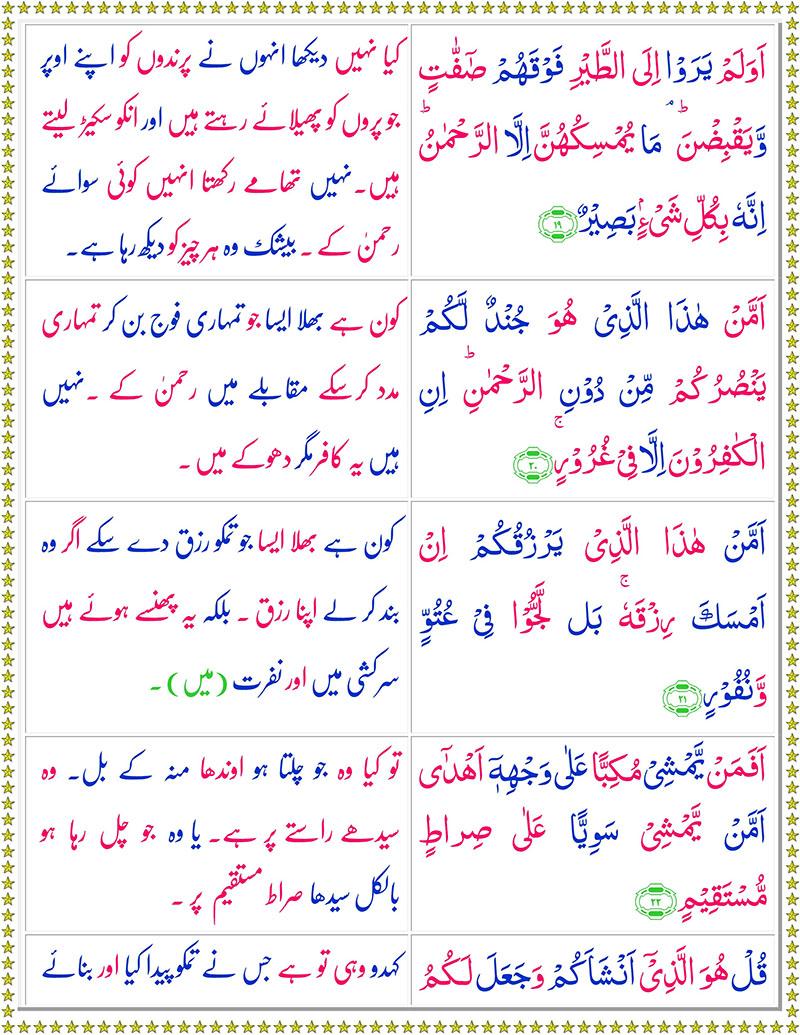 اَوَلَمْ يَرَوْا اِلَى الطَّيْرِ فَوْقَهُمْ صٰٓفّٰتٍ
وَّيَقْبِضْنَ ؕۘ مَا يُمْسِكُهُنَّ اِلَّا الرَّحْمٰنُ ؕ
اِنَّهٗ بِكُلِّ شَىْءٍۢ بَصِيْرٌ ۱۹
کیا نہیں دیکھا انہوں نے پرندوں کو اپنے اوپر
جو پروں کو پھیلائے رہتے ہیں اور انکو سکیڑ لیتے
ہیں۔ نہیں تھامے رکھتا انہیں کوئی سوائے
رحمنٰ کے ۔ بیشک وہ ہر چیز کو دیکھ رہا ہے۔
اَمَّنْ هٰذَا الَّذِىْ هُوَ جُنْدٌ لَّكُمْ
يَنْصُرُكُمْ مِّنْ دُوْنِ الرَّحْمٰنِ ؕ اِنِ
الْكٰفِرُوْنَ اِلَّا فِىْ غُرُوْرٍ ۚ ۲۰
کون ہے بھلا ایسا جو تمہاری فوج بن کر تمہاری
مدد کر سکے مقابلے میں رحمنٰ کے ۔ نہیں
ہیں یہ کافر مگر دھوکے میں ۔
اَمَّنْ هٰذَا الَّذِىْ يَرْزُقُكُمْ اِنْ
اَمْسَكَ رِزْقَهٗ ۚ بَل لَّجُّوْا فِىْ عُتُوٍّ
وَّنُفُوْرٍ ۲۱
کون ہے بھلا ایسا جو تمکو رزق دے سکے اگر وہ
بند کر لے اپنا رزق ۔ بلکہ یہ پھنسے ہوئے ہیں
سرکشی میں اور نفرت (میں) ۔
اَفَمَنْ يَّمْشِىْ مُكِبًّا عَلٰى وَجْهِهٖۤ اَهْدٰٓى
اَمَّنْ يَّمْشِىْ سَوِيًّا عَلٰى صِرَاطٍ
مُّسْتَقِيْمٍ ۲۲
تو کیا وہ جو چلتا ہو اوندھا منہ کے بل۔ وہ
سیدھے راستے پر ہے۔ یا وہ جو چل رہا ہو
بالکل سیدھا صراط مستقیم پر ۔
قُلْ هُوَ الَّذِىْۤ اَنْشَاَكُمْ وَجَعَلَ لَكُمُ
کہدو وہی تو ہے جس نے تمکو پیدا کیا اور بنائے